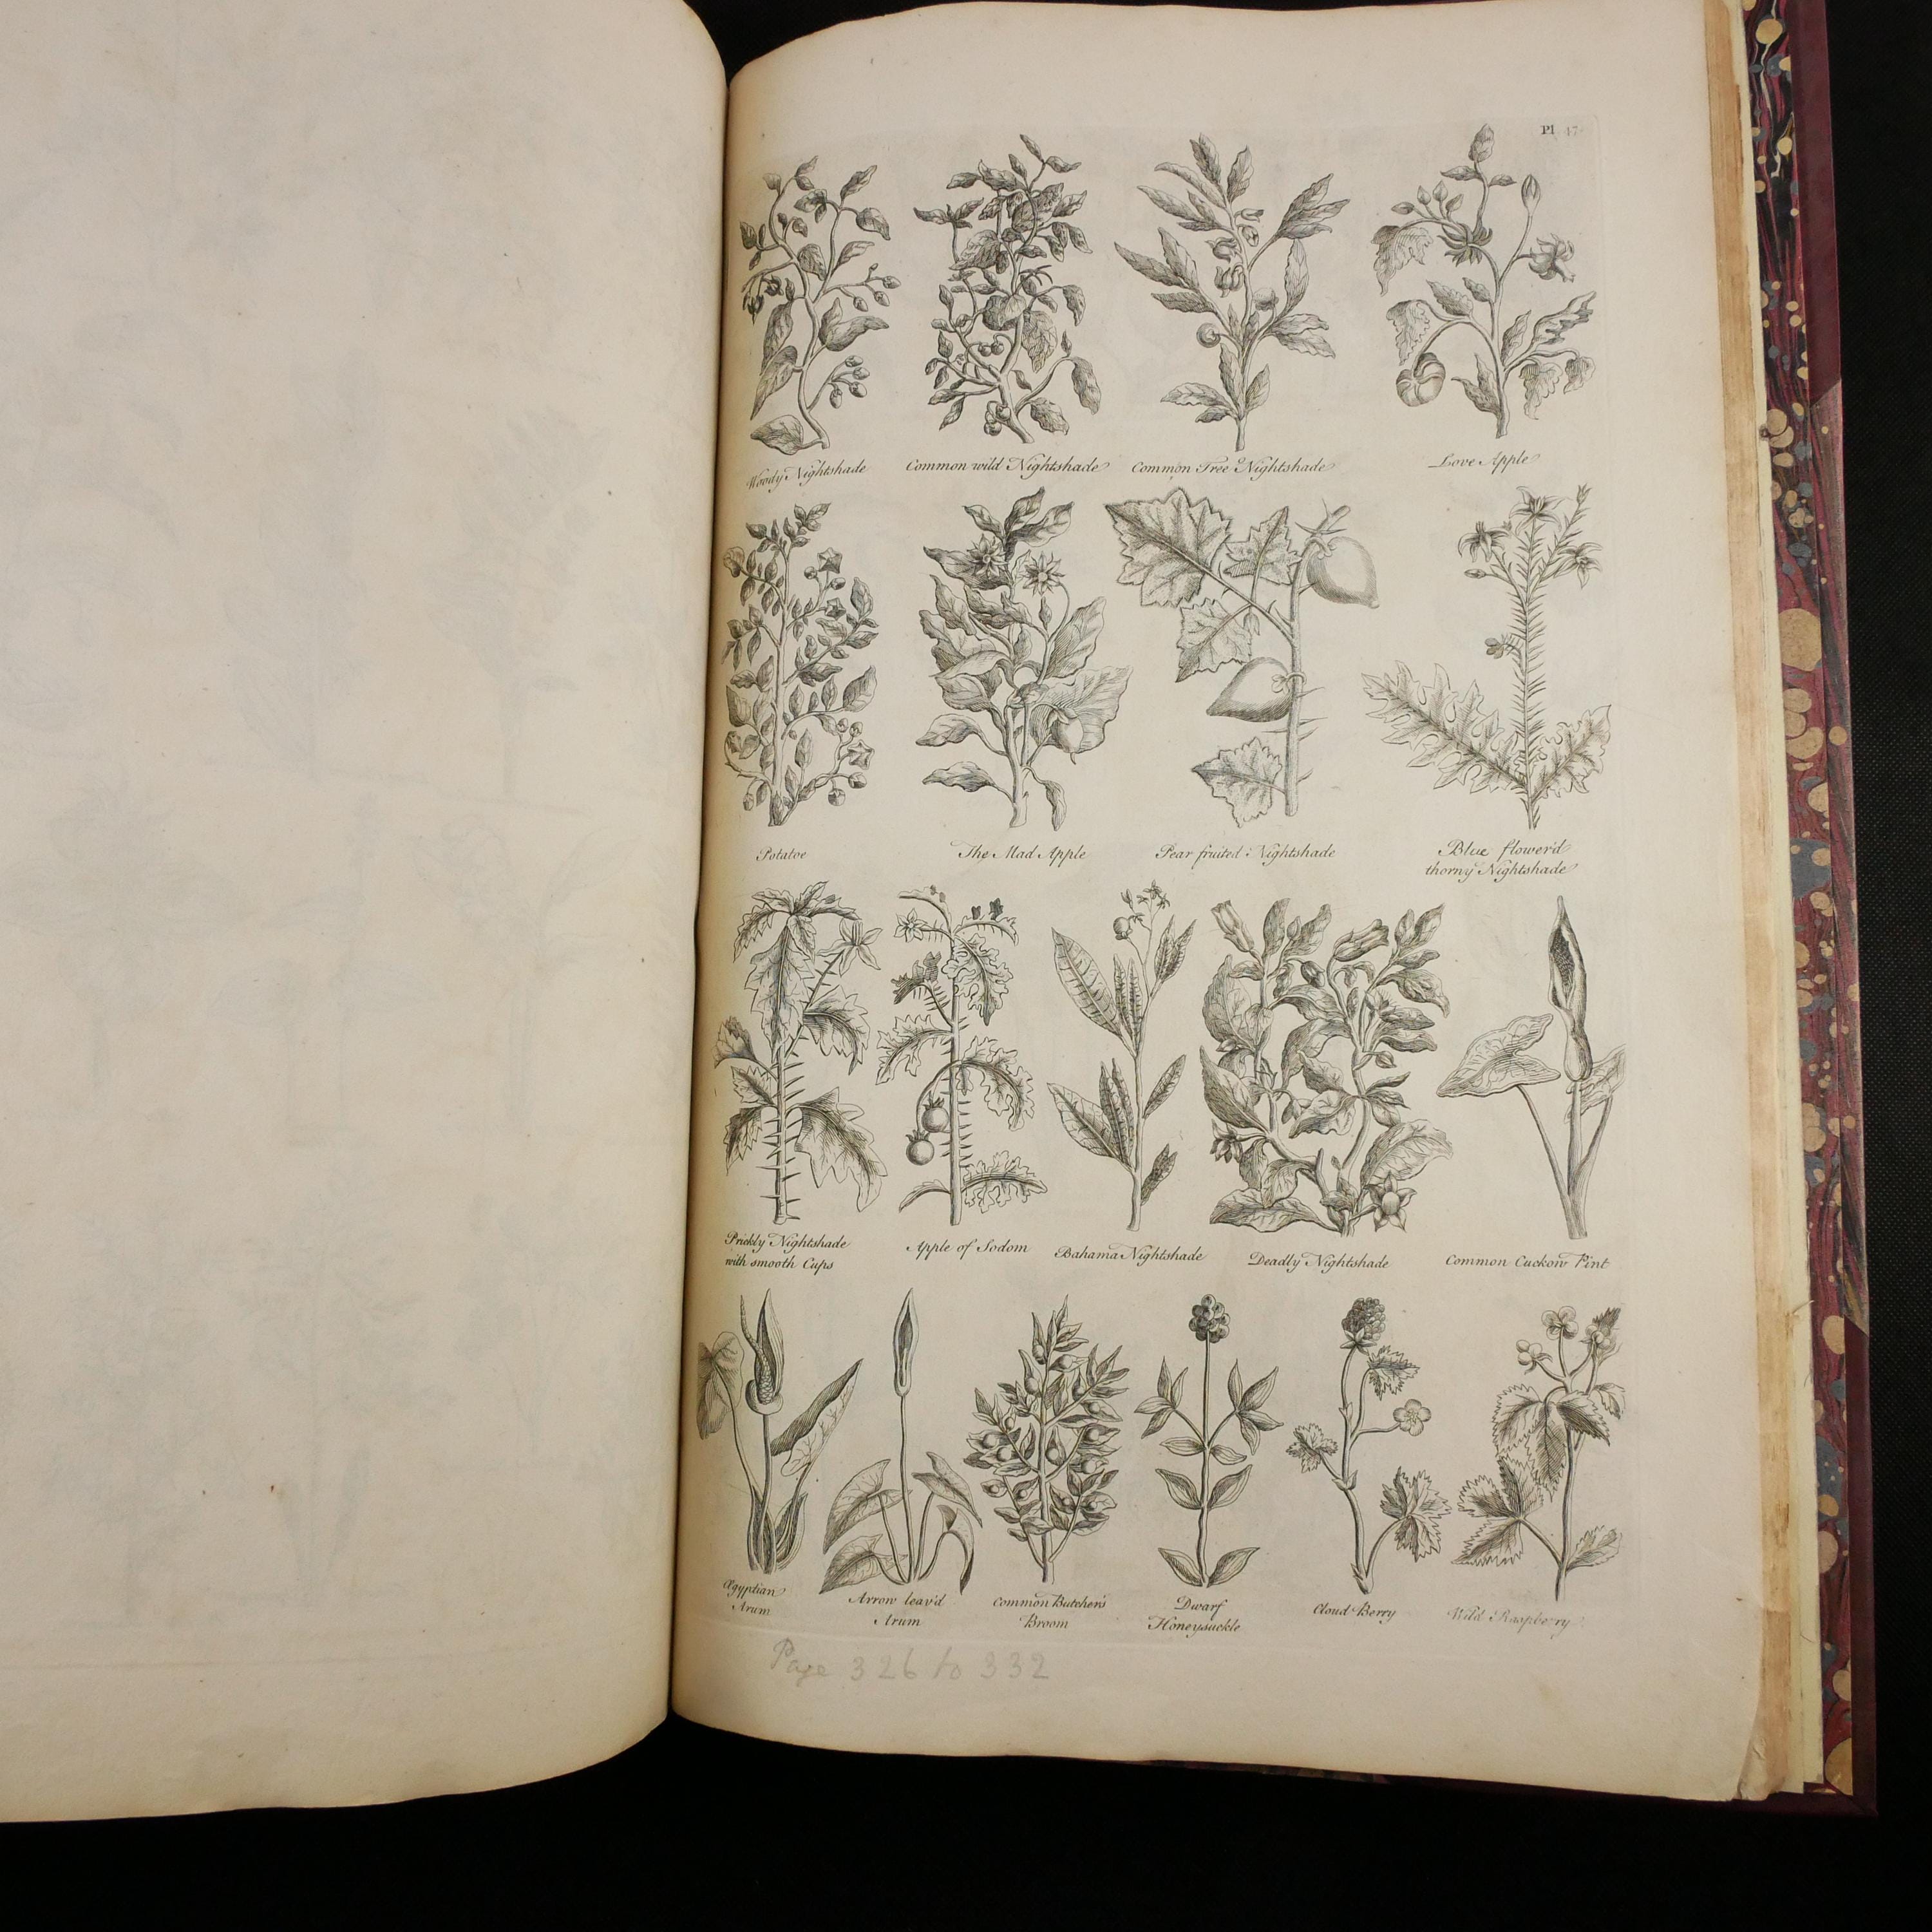 Pl 47
Woody Nightshade
Common wild Nightshade
Common Tree Nightshade
Love Apple
Potatoe
The Mad Apple
Pear fruited Nightshade
Blue flower'd
thorny Nightshade
Prickly Nightshade
with smooth Cups
Apple of Sodom
Bahama Nightshade
Deadly Nightshade
Common Cuckow Pint
Ægyptian
Arum
Arrow leav'd
Arum
Common Butcher's
Broom
Dwarf
Honeysuckle
Cloud Berry
Wild Raspberry
Page 326 to 332